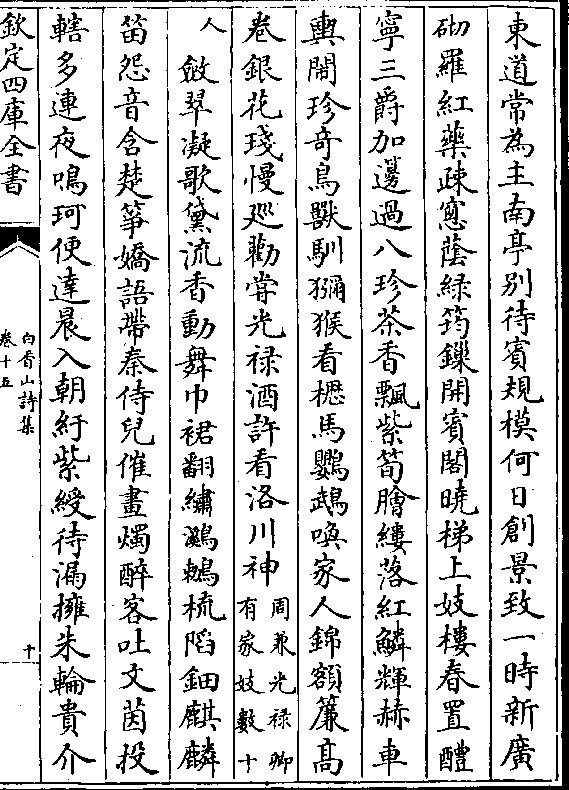 東道常為主南亭别待賓規模何日創景致一時新廣
砌羅紅藥疎窓蔭綠筠鏁開賓閣曉梯上妓樓春置醴
寧三爵加籩過八珍茶香飄紫筍膾縷落紅鱗輝赫車
輿鬧珍竒鳥獸馴獼猴看櫪馬鸚鵡喚家人錦額簾髙
卷銀花琖慢廵勸嘗光禄酒許看洛川神周兼光禄卿有家妓數十
人斂翠凝歌黛流香動舞巾裙翻繡鸂鶒梳陷鈿麒麟
笛怨音含楚箏嬌語帶秦侍兒催畫燭醉客吐文茵投
轄多連夜鳴珂便達晨入朝紆紫綬待漏擁朱輪貴介
欽定四庫全書
白香山詩集
卷十五
十